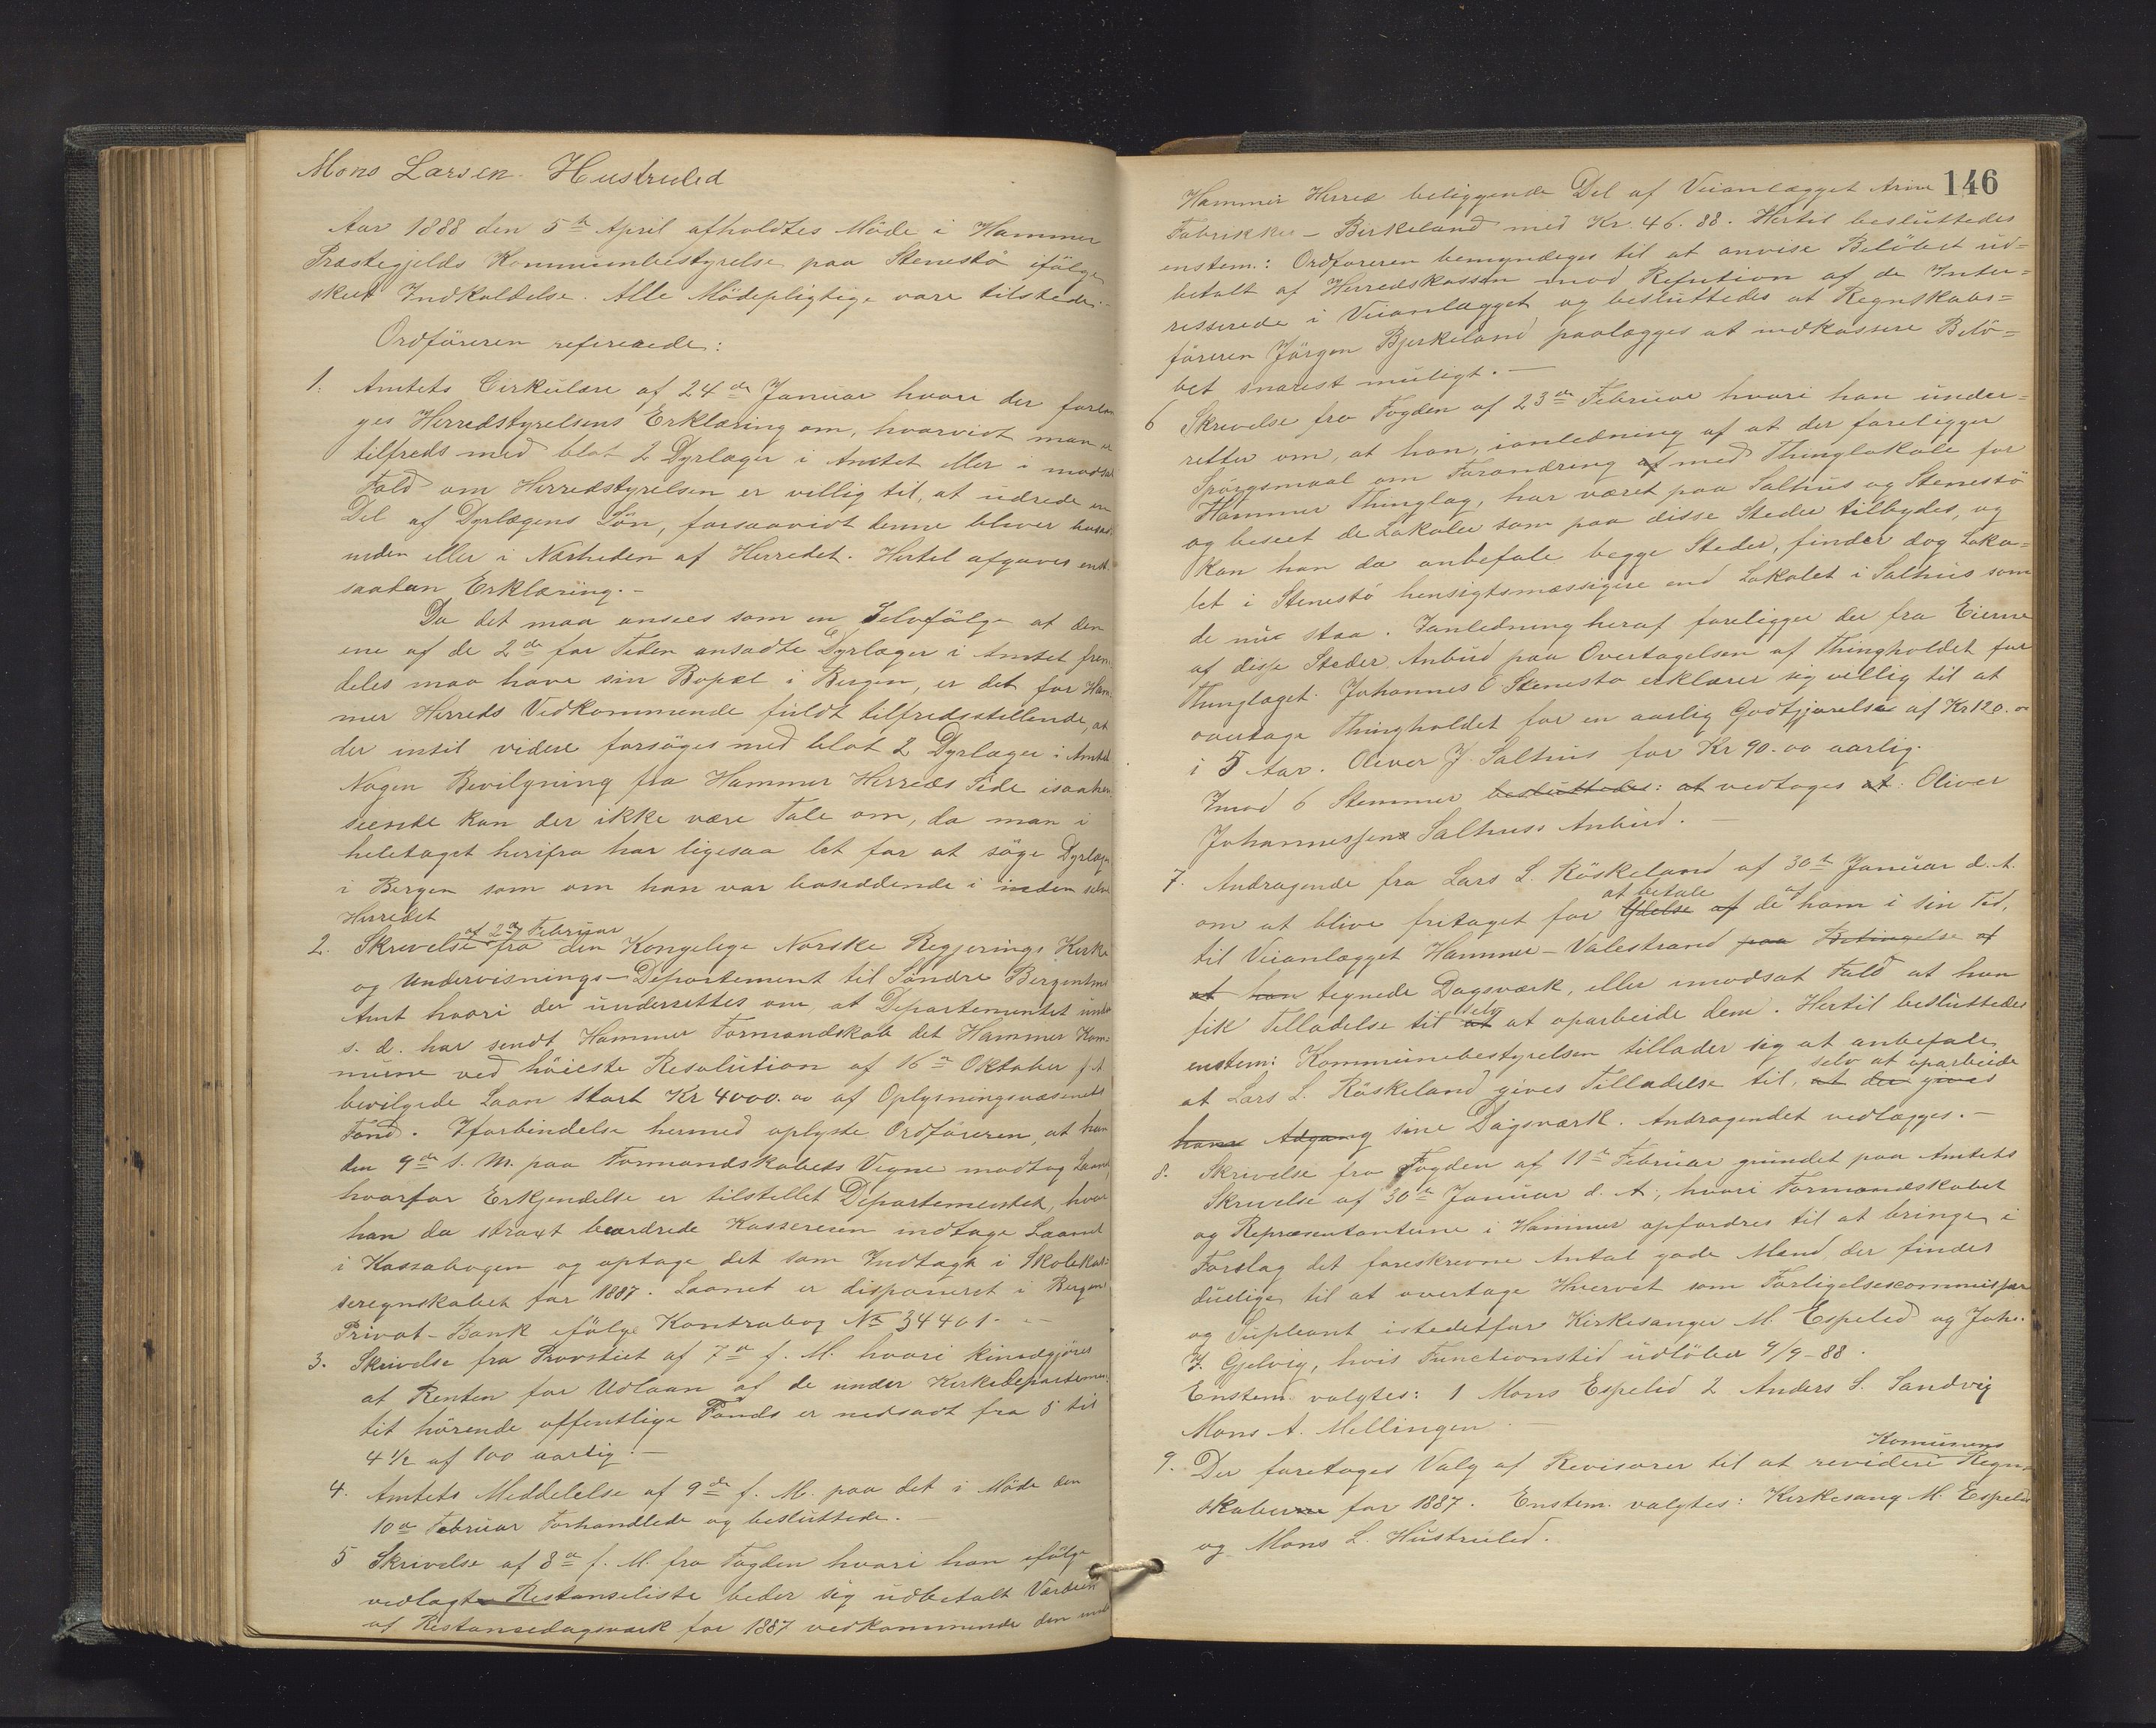 Mons Larsen Hustruled
Aar 1888 den 5te April afholdtes Möde i Hammer
Præstegjelds Kommunbestyrelse paa Stenestö ifölge
skeet Indkaldelse. Alle Mödepligtige vare tilstede.-
Ordföreren refererede:
1. Amtets Cirkulære af 24de Januar hvori der forlan
ges Herredstyrelsens Erklæring om, hvorvidt man er
tilfreds med blot 2 Dyrlæger i Amtet eller i modsat
Fald om Herredstyrelsen er villig til, at udrede en
Del af Dyrlægens Lön, forsaavidt denne bliver bosat
inden eller i Nærheden af Herredet. Hertil afgaves enst.
saadan Erklæring.-
Da det maa ansees som en Selvfölge at den
ene af de 2de for Tiden ansadte Dyrlæger i Amtet frem
deles maa have sin Bopæl i Bergen, er det for Ham
mer Herreds Vedkommende fuldt tilfredsstillende, at
der intil videre forsöges med blot 2 Dyrlæger i Amtet
Nogen Bevilgning fra Hammer Herreds Side isaahen
seende kan der ikke være Tale om, da man i
heletaget herifra har ligesaa let for at söge Dyrlæge
i Bergen som om han var bosiddende i inden selve
Herredet
af 2den Februar
2. Skrivelse fra den Kongelige Norske Regjerings Kirke
og Undervisnings-Departement til Söndre Bergenhus
Amt hvori der underrettes om at Departementet under
s. d. har sendt Hammer Formandskab det Hammer Kom-
mune ved höieste Resolution af 16de Oktober f. A
bevilgede Laan stort Kr 4000.00 af Oplysningsvæsenets
Fond. Iforbindelse hermed oplyste Ordföreren, at han
den 9de s. M. paa Formandskabets Vegne modtog Laanet,
hvorfor Erkjendelse er tilstillet Departementet, hvor
han da straxt beordrede Kassereren indtage Laanet
i Kassabogen og optage det som Indtægt i Skolekas-
seregnskabet for 1887. Laanet er disponeret i Bergens
Privat-Bank ifölge Kontrabog No 34401.-
3. Skrivelse fra Provstiet af 7de f. M. hvori kundgjöres
at Renten for Udlaan af de under Kirkedepartemen
tet hörende offentlige Fonds er nedsadt fra 5 til
4 1/2 af 100 aarlig.-
4. Amtets Meddelelse af 9de f. M. paa det i Möde den
10de Februar Forhandlede og besluttede.-
5 Skrivelse af 8de f. M. fra Fogden hvori han ifölge
vedlagte Restanseliste beder sig udbetalt Værdien
af Restansedagsværk for 1887 vedkommende den under
146
Hammer Herred beliggende Del af Veianlægget Arne
Fabrikker - Birkeland med Kr. 46.88. Hertil besluttedes
enstem.: Ordföreren bemyndiges til at anvise Belöbet ud=
betalt af Herredskassen mod Refution af de Inter=
resserede i Veianlægget og besluttedes at Regnskabs=
föreren Jörgen Bjerkeland paalægges at indkassere Belö=
bet snarest muligt.-
6 Skrivelse fra Fogden af 23de Februar hvori han under=
retter om, at han, ianledning af at der foreligger
Spörgsmaal om Forandring af med Thinglokale for
Hammer Thinglag, har været paa Salhus og Stenestö
og beseet de Lokaler som paa disse Steder tilbydes, og
kan han da anbefale begge Steder, finder dog Loka=
let i Stenestö hensigtsmæssigere end Lokalet i Salhus som
de nu staa. Ianledning heraf foreligger der fra Eierne
af disse Steder Anbud paa Overtagelsen af Thingholdet for
Thinglaget. Johannes O. Stenestö erklærer sig villig til at
overtage Thingholdet for en aarlig Godtgjörelse af Kr 120.00
i 5 Aar. Oliver J. Salhus for Kr 90.00 aarlig.
Imod 6 Stemmer besluttedes: at vedtoges at: Oliver
Johannessens Salhuss Anbud.-
7. Andragende fra Lars L. Röskeland af 30te Januar d. A.
at betale af
om at blive fritaget for Ydelse af de ham i sin Tid,
til Veianlægget Hammer-Valestrand paa Betingelse af
at han tegnede Dagsværk, eller imodsat Fald at han
selv
fik Tilladelse til at at oparbeide dem. Hertil besluttedes
enstem: Kommunebestyrelsen tillader sig at anbefale
selv at oparbeide
at Lars L. Röskeland gives Tilladelse til, at der gives
ham Adgang sine Dagsværk. Andragendet vedlægges.-
8. Skrivelse fra Fogden af 11te Februar grundet paa Amtets
Skrivelse af 30te Januar d. A., hvori Formandskabet
og Repræsentanterne i Hammer opfordres til at bringe i
Forslag det foreskrevne Antal gode Mænd der findes
duelige til at overtage Hvervet som Forligelsescommissær
og Supleant istedetfor Kirkesanger M. Espelid og Johs.
J. Gjelvig, hvis Functionstid udlöber 9/9-88.
Enstem. valgtes: 1 Mons Espelid 2 Anders S. Sandvig
Mons A. Mellingen.-
Komunens
9. Der foretages Valg af Revisorer til at revidere Regn=
skaberne for 1887. Enstem. valgtes: Kirkesang M. Espelid
og Mons L. Hustruled.